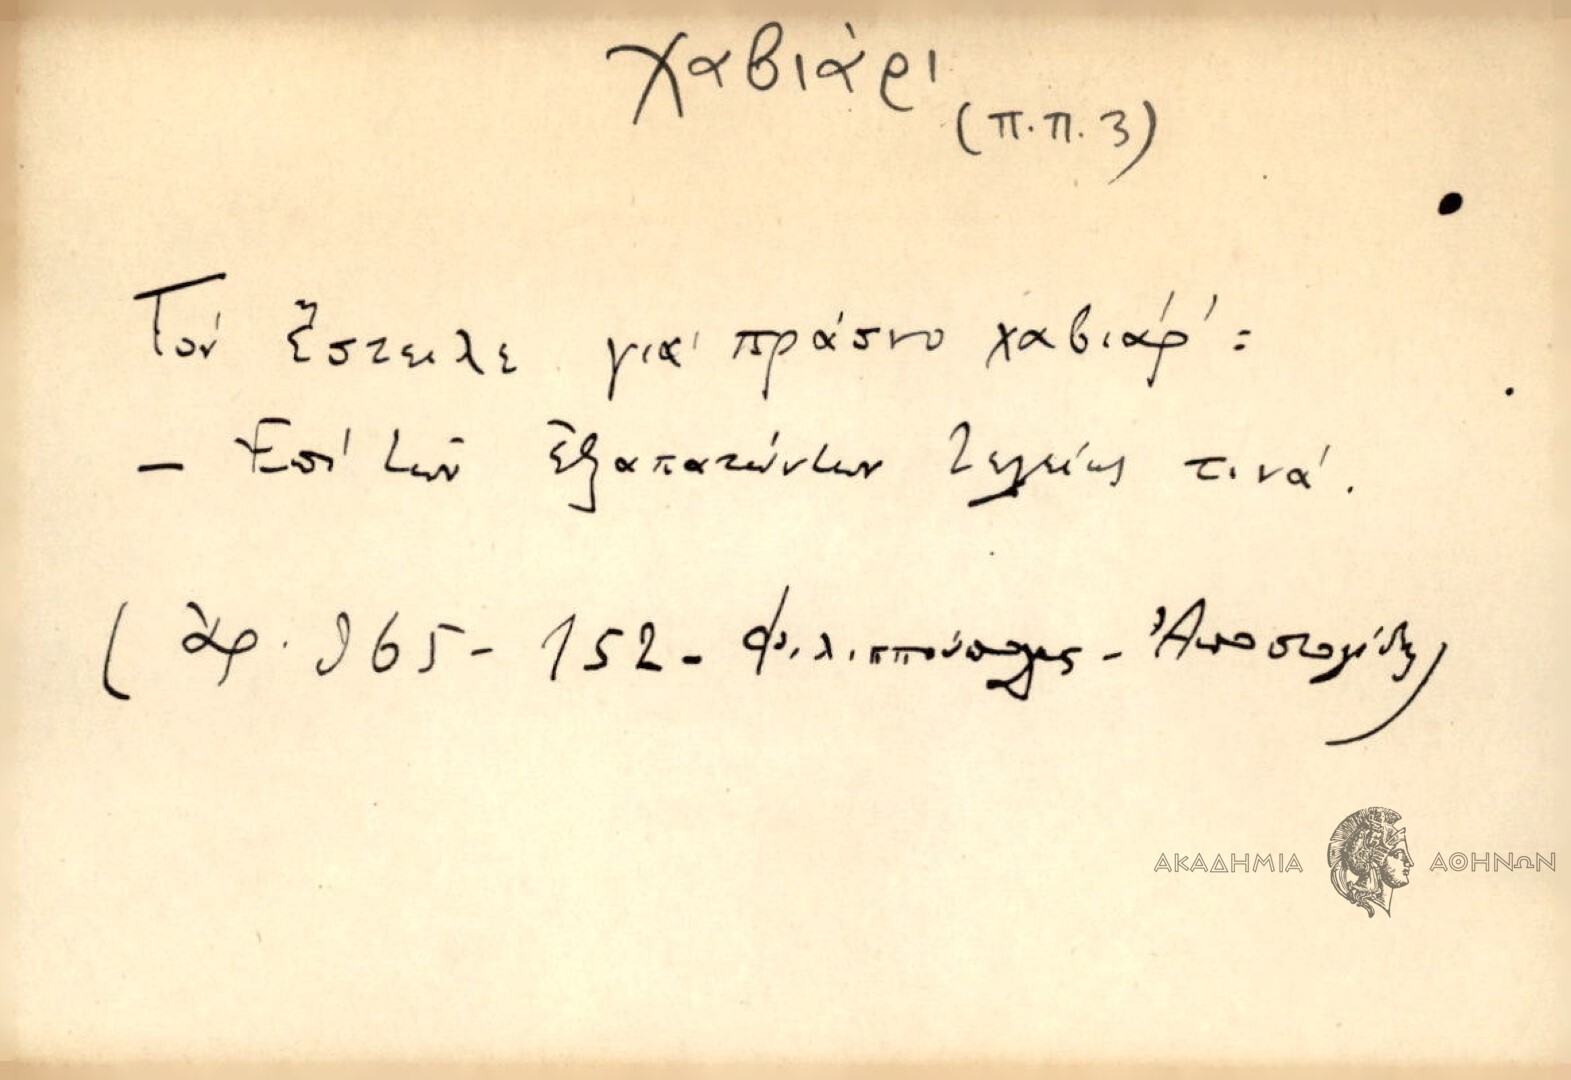 χαβιάρι
(π.π. 3)
Τὸν ἔστειλε γιὰ πράσινο χαβιάρ' :
- Ἐπὶ τῶν ἐξαπατώντων τελείως τινά.
(ἀρ. 965 - 152 - Φιλιππούπολις - Ἀποστολίδη)
ΑΚΑΔΗΜΙΑ ΑΘΗΝΩΝ